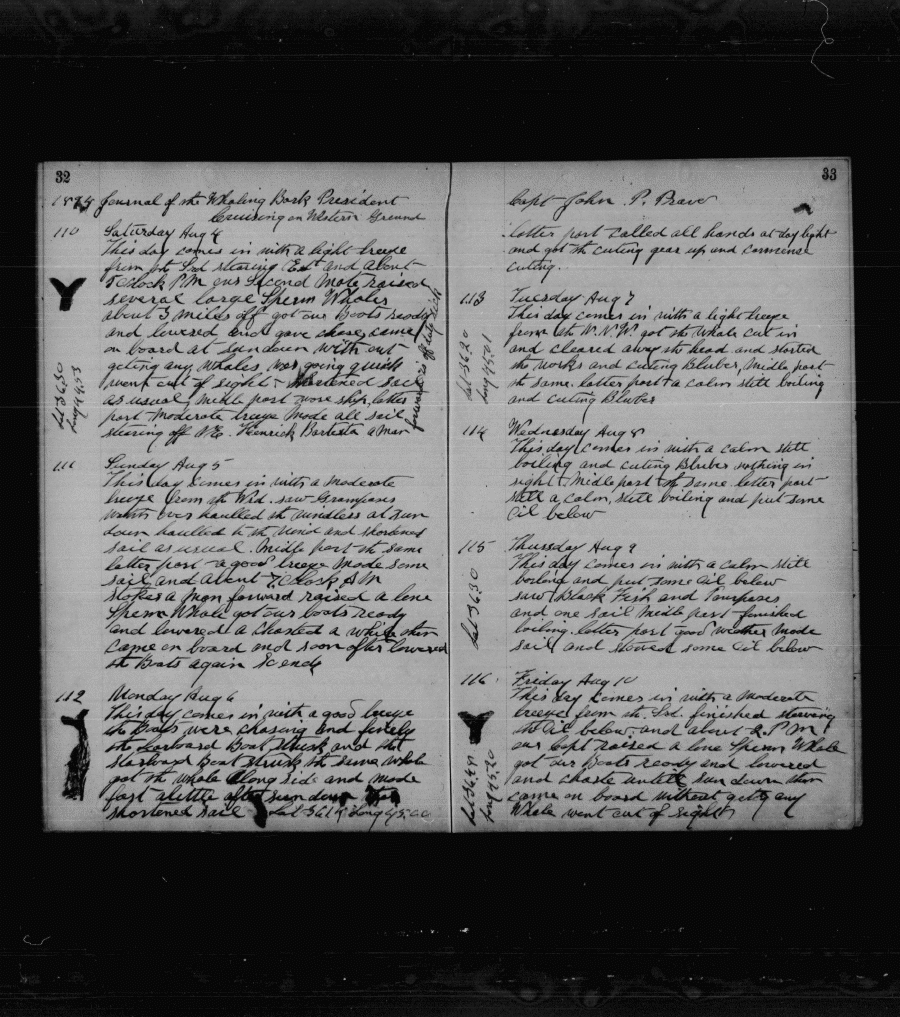 32
Journal of the Whaling Bark President
Cruising on Western Ground
110 Saturday Aug 4
This day comes in with a light breeze
from the Srd stearing Est and about
5 oclock P.M. our Second Mate raised
several large Sperm Whales
about 3 miles off got our Boats ready
and lowered and gave chase came
on board at sundown with out
geting any whales, was going quick
went out of sight shortened sail
as usual, Midle part wore ship, latter
part moderate breeze Made all sail
stearing off NE. Henrick Bartista a man
forward is off duty sick
Lat 36.30
Long 44.53
111 Sunday Aug 5
This day Comes in with a moderate
breeze from the Wrd. saw Grampases
watch over haulled the windless at sun
down haulled to the wind and shortened
sail as usual. Midle part the same
latter part a good breeze Made some
sail, and about 7 oclock A.M.
a man forward raised a lone
Sperm Whale got our boats ready
and lowered & Chasted a while then
Came on board and soon after lowered
the Boats again So ends
112 Monday Aug 6
This day comes in with a good breeze
the Boats were chasing and finely
the Larboard Boat struck and the
Starboard Boat struck the same whale
got the whale along side and made
fast alittle after sun down then
shortened sail Lat 36.14 Long 45.00
33
Capt John P. Prave
latter part called all hands at day light
and got the cuting gear up and commense
cuting.
113 Tuesday Aug 7
This day comes in with a light breeze
from the N.N.W. got the Whale cut in
and cleared away the head and started
the works and cuting Bluber, Midle part
the same. latter part a calm still boiling
and cuting Bluber
Lat 36.20
Long 45.01
114 Wednesday Aug 8
This day comes in with a calm still
boiling and cuting Bluber nothing in
sight. Midle part the same. latter part
still a calm, still boiling and put some
Oil below
115 Thursday Aug 9
This day comes in with a calm still
boiling and put some Oil below
saw Black Fish and Pourpases
and one sail Midle part finished
boiling. latter part good weather Made
sail and stowed some Oil below
Lat 36.30
116 Friday Aug 10
This day Comes in with a Moderate
breeze from the Srd. finished stowing
the Oil below, and about 2. P.M.
our Capt raised a lone Sperm Whale
got our Boats ready and lowered
and chaste untill sun down then
came on board without getting any
Whale went out of sight
Lat 36.48
Long 45.20